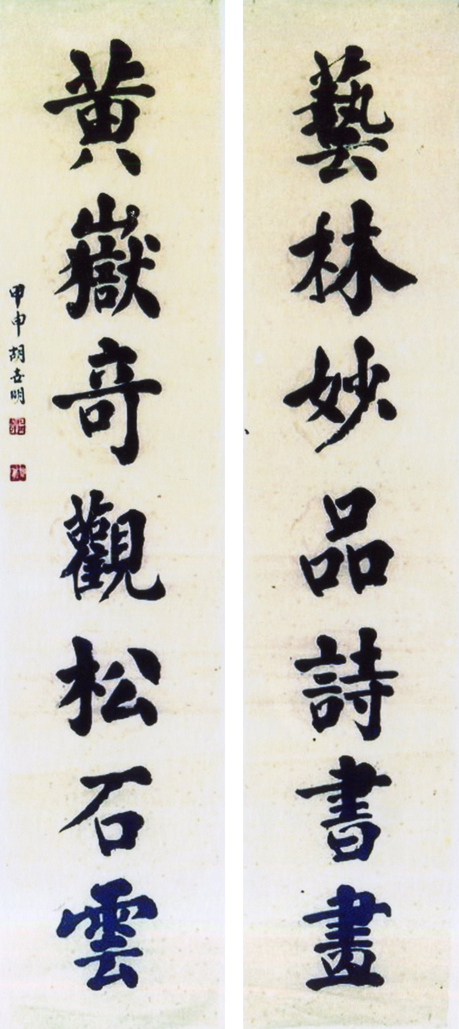 藝林妙品詩書畫
黃嶽奇觀松石雲
甲申胡世明